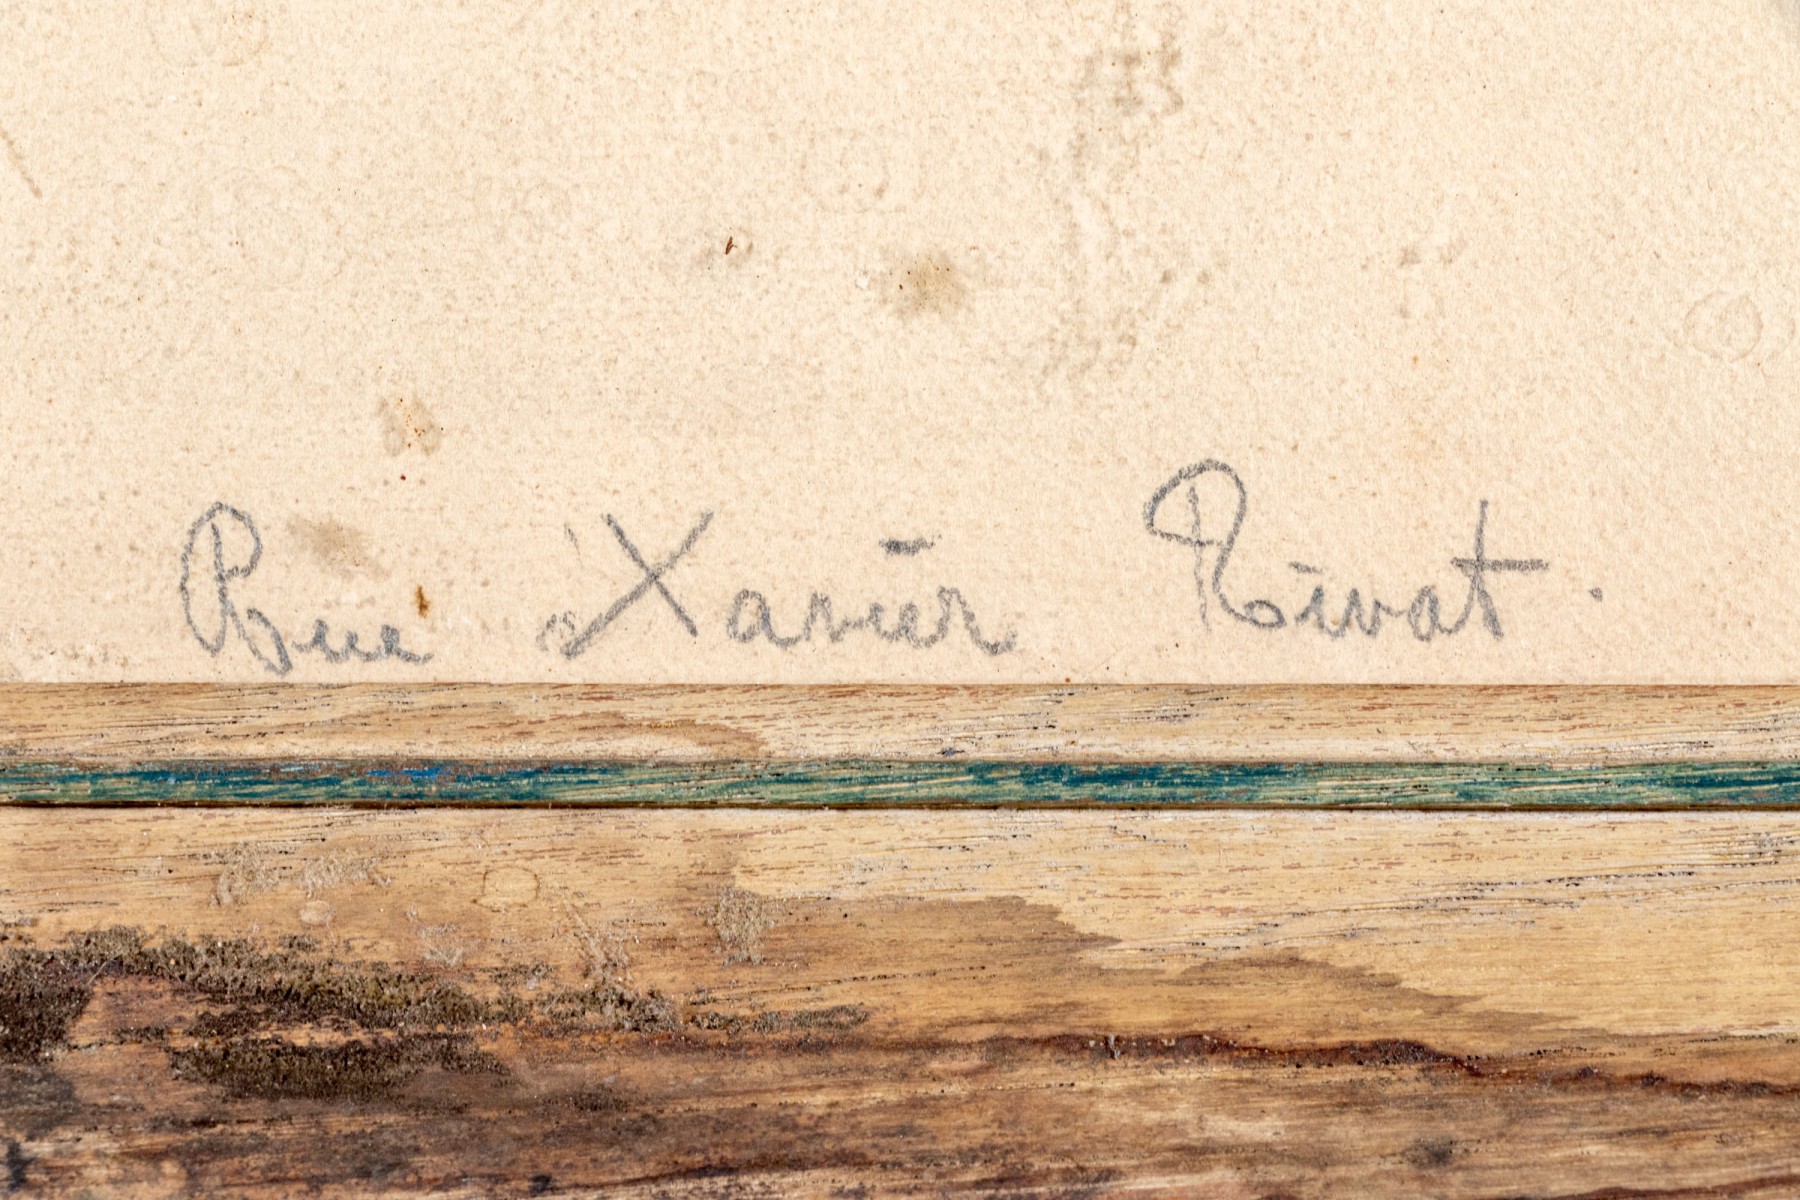 Rue Xavier Rivat.